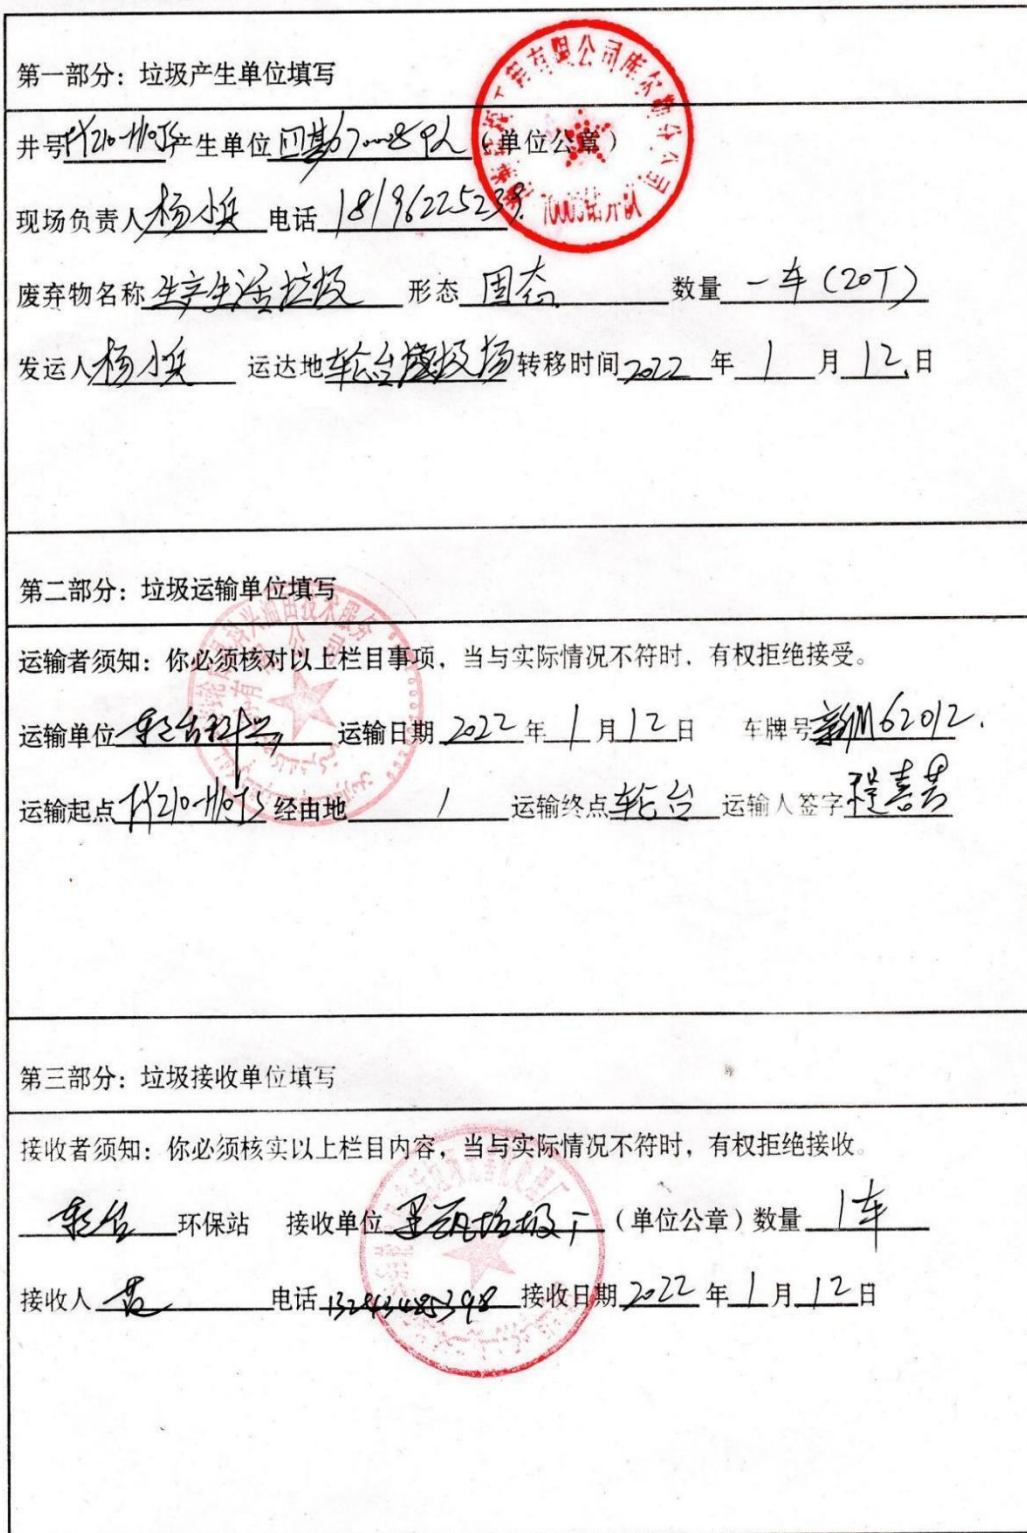 第一部分：垃圾产生单位填写
井号 产生单位 (单位公章)
现场负责人 杨小兵 电话 18196225238
废弃物名称 生产生活垃圾 形态 固态 数量 一车(20T)
发运人 杨小兵 运达地 轮台垃圾场 转移时间 2022 年 1 月 12 日
第二部分：垃圾运输单位填写
运输者须知：你必须核对以上栏目事项，当与实际情况不符时，有权拒绝接受。
运输单位 轮台科兴 运输日期 2022 年 1 月 12 日 车牌号 62012
运输起点 经由地 / 运输终点 轮台 运输人签字
第三部分：垃圾接收单位填写
接收者须知：你必须核实以上栏目内容，当与实际情况不符时，有权拒绝接收。
轮台 环保站 接收单位 垃圾厂 (单位公章)数量 1车
接收人 电话 接收日期 2022 年 1 月 12 日